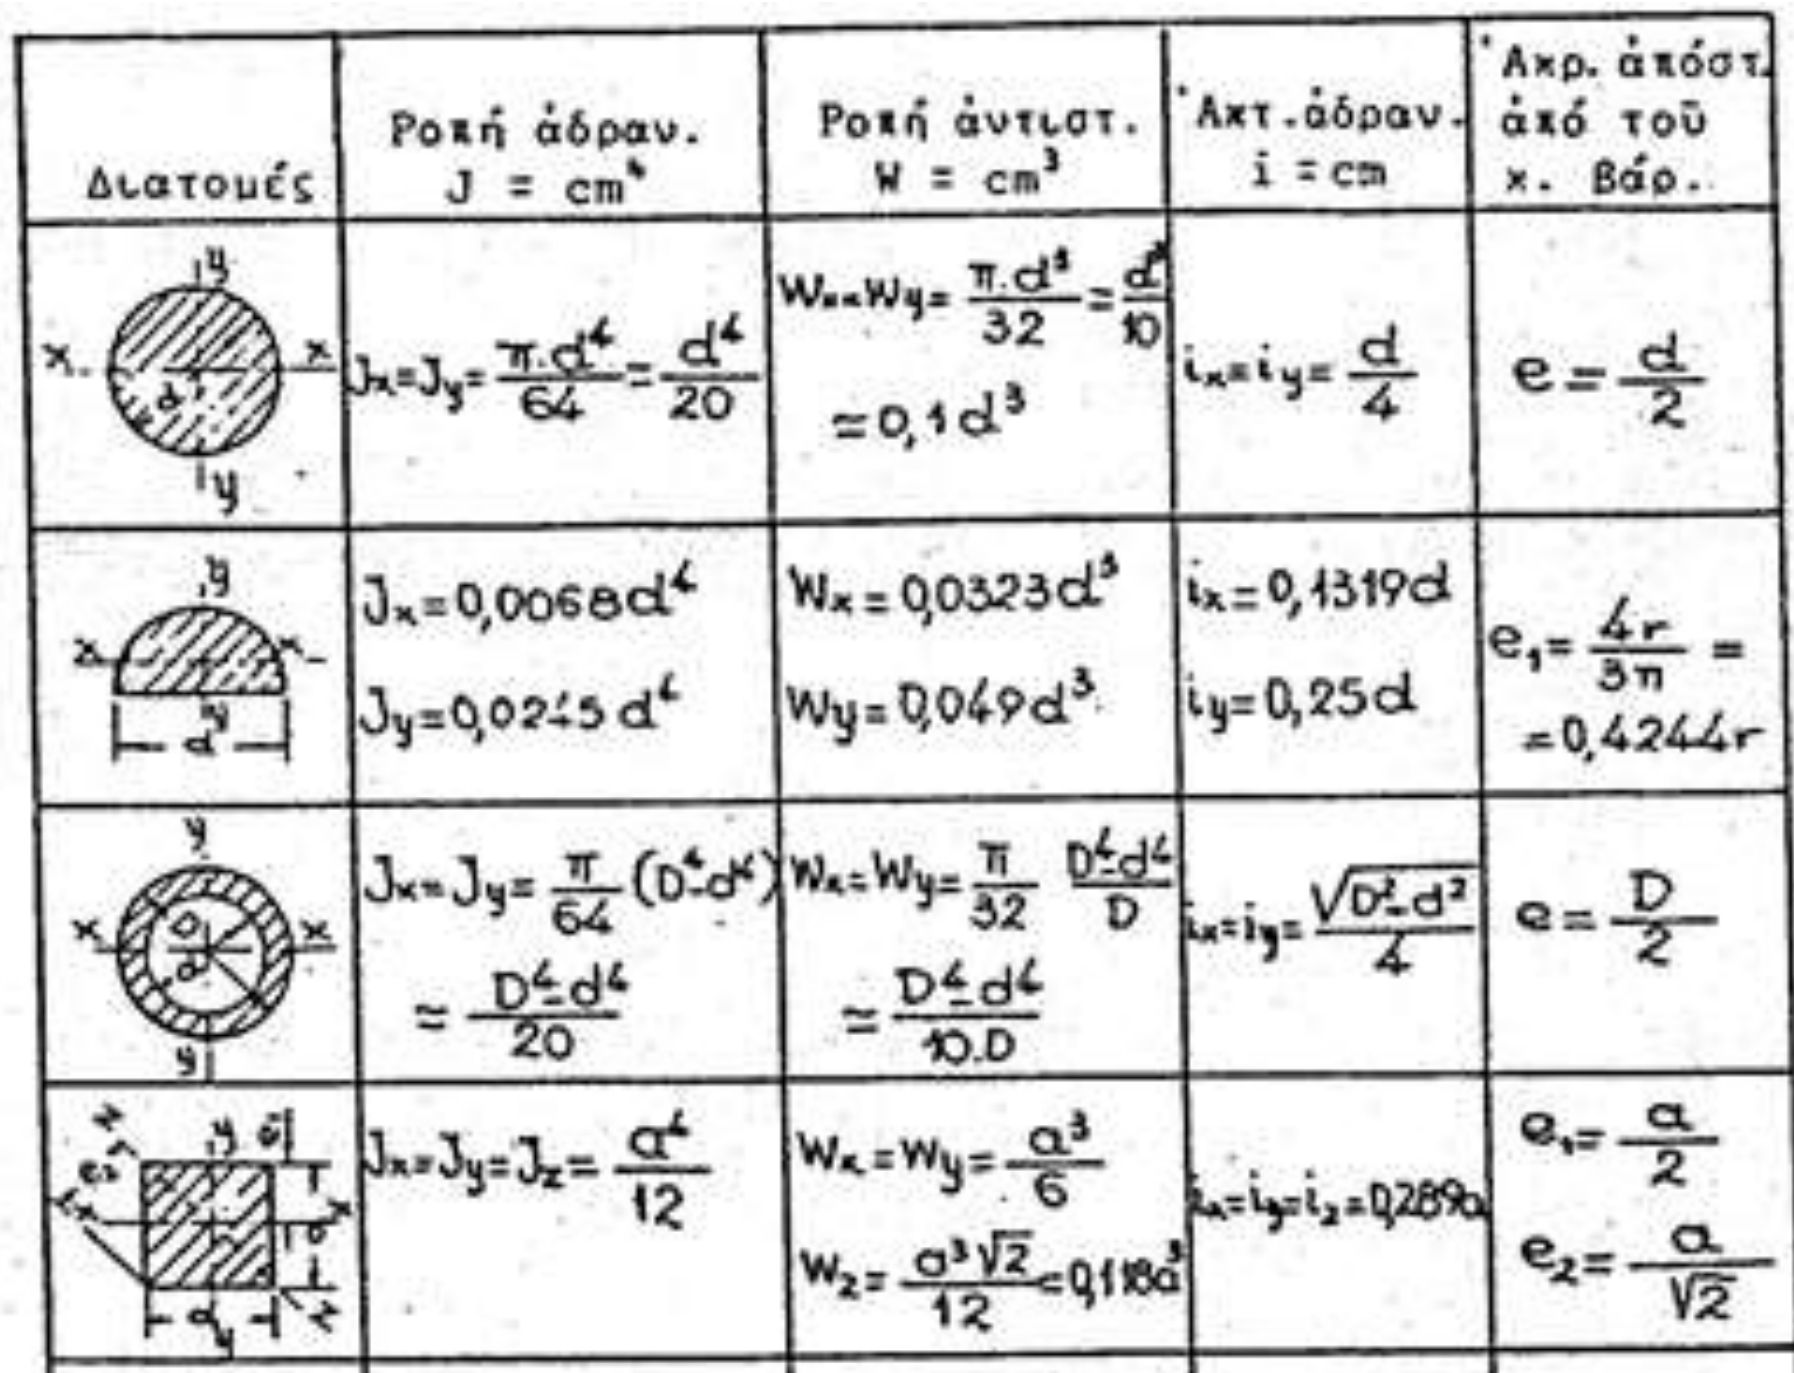 Διατομές
Ροπή ἀδραν.
J = cm⁴
Ροπή ἀντιστ.
W = cm³
Ἀκτ.ἀδραν.
i = cm
Ἀκρ. ἀπόστ.
ἀπό τοῦ
κ. βάρ.
y
x
x
d
y
Jx=Jy= π.d⁴/64 ≃ d⁴/20
Wx=Wy= π.d³/32 ≃ d³/10
≃0,1d³
ix=iy= d/4
e = d/2
y
x
x
y
d
Jx=0,0068d⁴
Jy=0,0245d⁴
Wx=0,0323d³
Wy=0,049d³
ix=0,1319d
iy=0,25d
e₁= 4r/3π =
=0,4244r
y
x
x
D
d
y
Jx=Jy= π/64 (D⁴-d⁴)
≃ D⁴-d⁴/20
Wx=Wy= π/32 D⁴-d⁴/D
≃ D⁴-d⁴/10.D
ix=iy= √D²-d²/4
e= D/2
z
y
e₁
e₂
x
x
a
z
a
y
Jx=Jy=Jz= a⁴/12
Wx=Wy= a³/6
Wz= a³√2/12 =0,118a³
ix=iy=iz=0,289a
e₁= a/2
e₂= a/√2